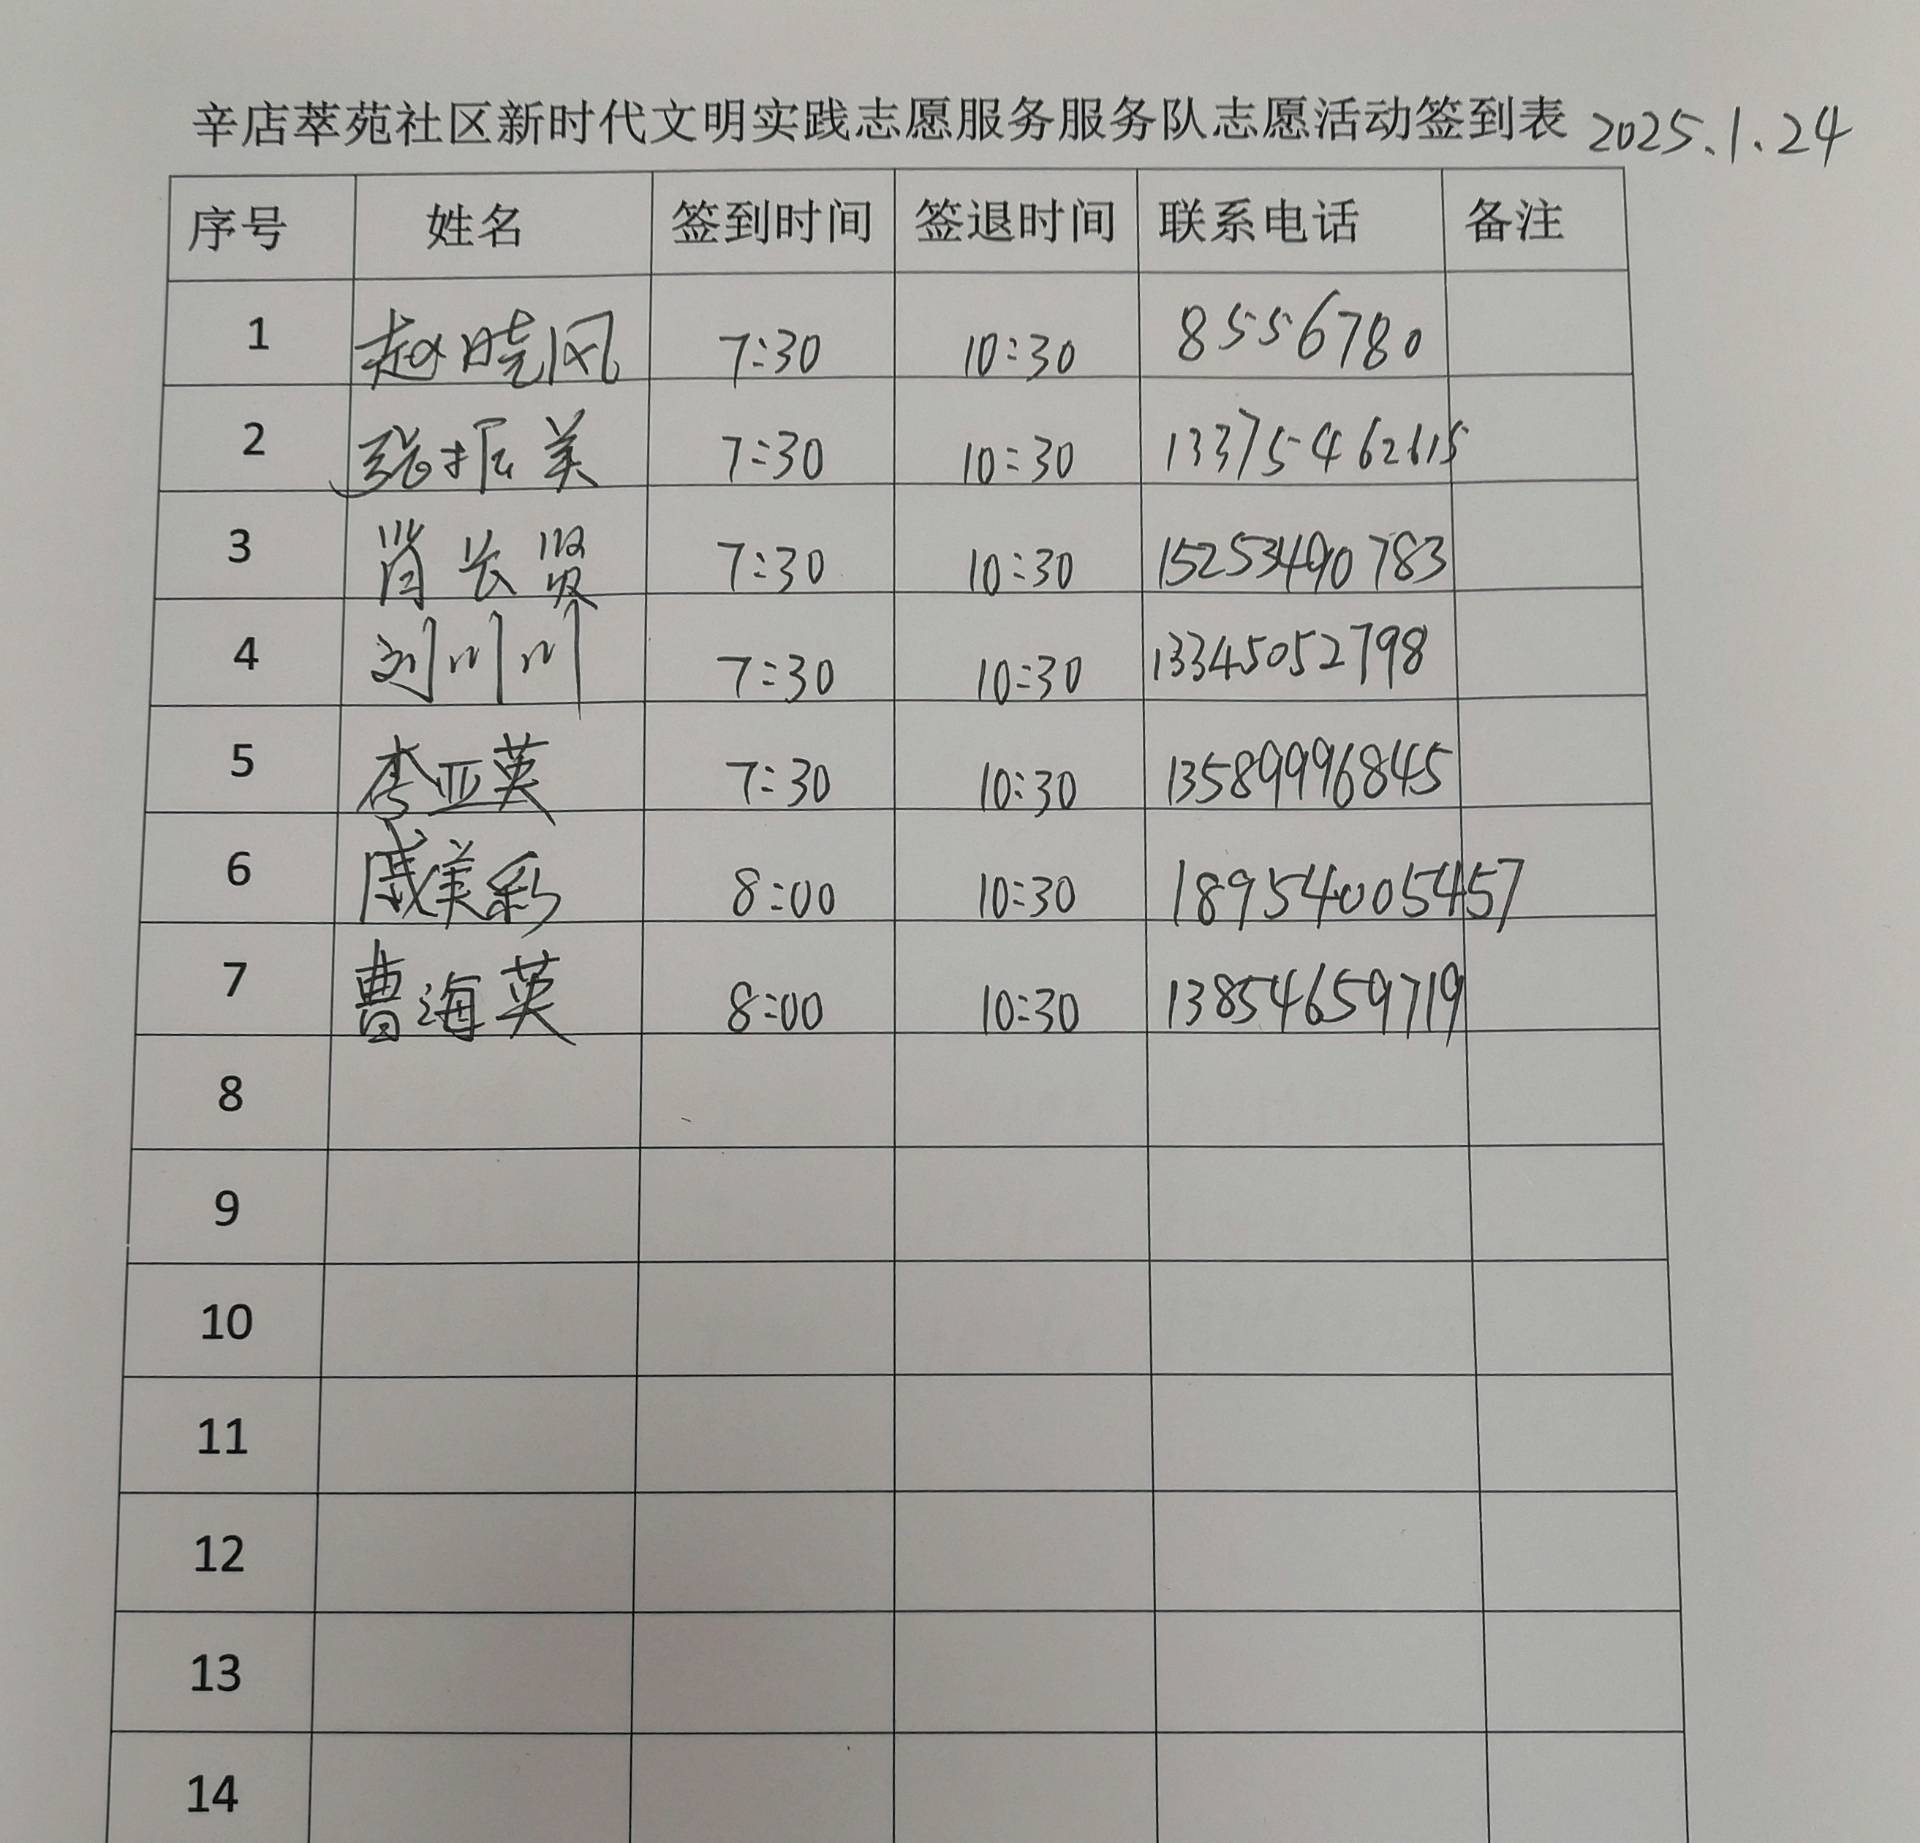 辛店萃苑社区新时代文明实践志愿服务服务队志愿活动签到表 2025.1.24
序号 姓名 签到时间 签退时间 联系电话 备注
1 赵晓风 7:30 10:30 8556780
2 张振美 7:30 10:30 13375462615
3 肖长贤 7:30 10:30 15253490783
4 刘川川 7:30 10:30 13345052798
5 李亚英 7:30 10:30 13589996845
6 戚美彩 8:00 10:30 18954005457
7 曹海英 8:00 10:30 13854659719
8
9
10
11
12
13
14